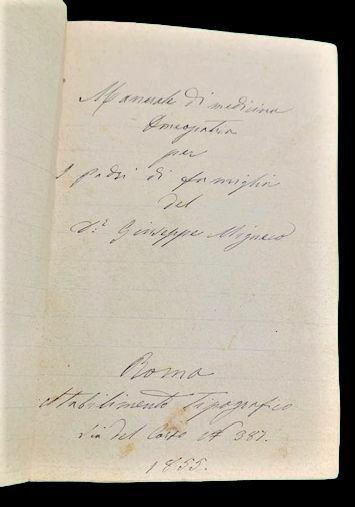 Manuale di medicina
Omeopatica
per
I padri di famiglia
del
Dr. Giuseppe Mignaco
Roma
Stabilimento Tipografico
Via del Corso No 387.
1855.